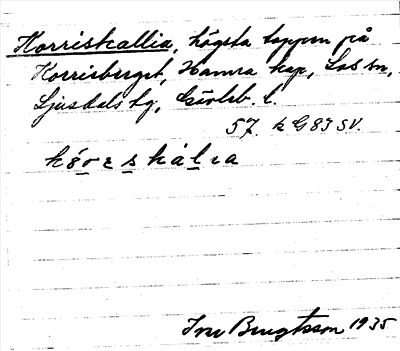 Korriskallia, högsta toppen på
Korrisberget, Hamra kap, Los sn,
Ljusdals tg, Gävleb. l.
57. k G83 SV.
kǒrεskália
Bengtsson 1935